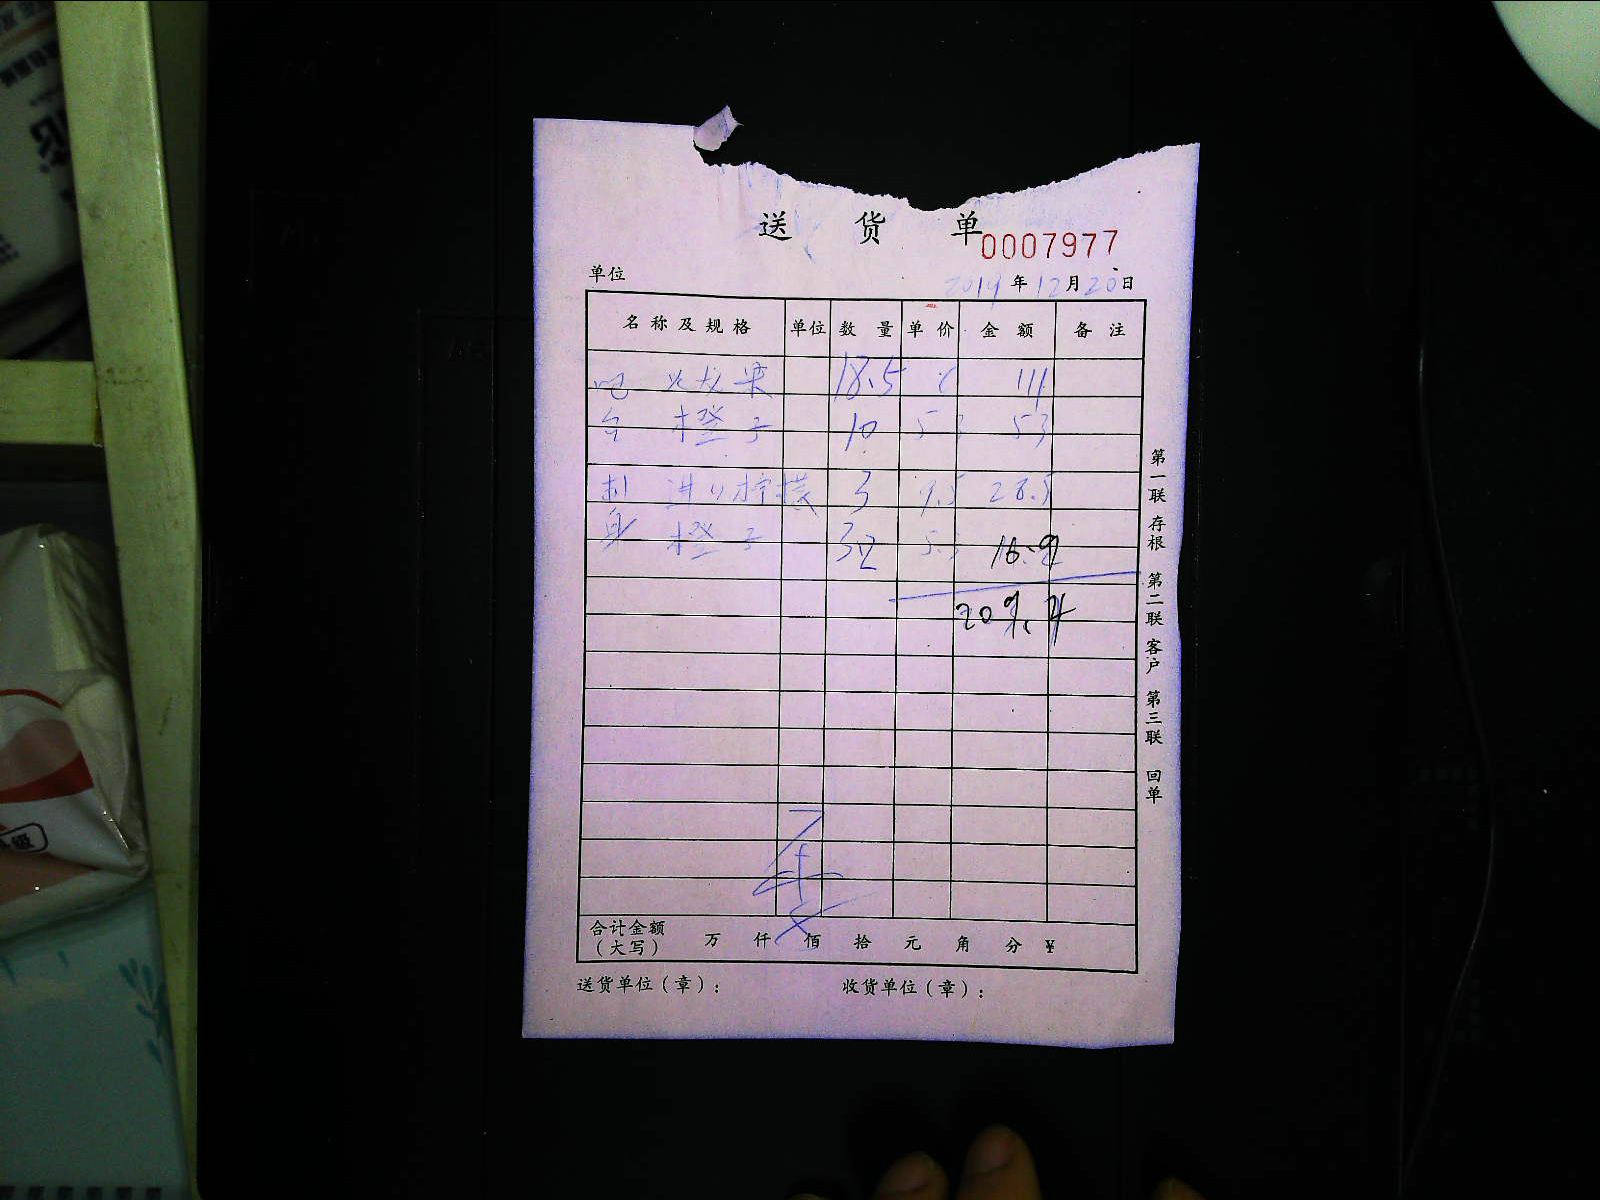 送 货 单 0007977
单位 2019年12月20日
名称及规格 单位 数量 单价 金额 备注
吧 火龙果 18.5 6 111
台 橙子 10 5.3 53
刺 进口柠檬 3 9.5 28.5
身 橙子 3.2 5.3 16.9
209.4
合计金额
(大写) 万 仟 佰 拾 元 角 分 ¥
送货单位(章): 收货单位(章):
第一联 存根 第二联 客户 第三联 回单